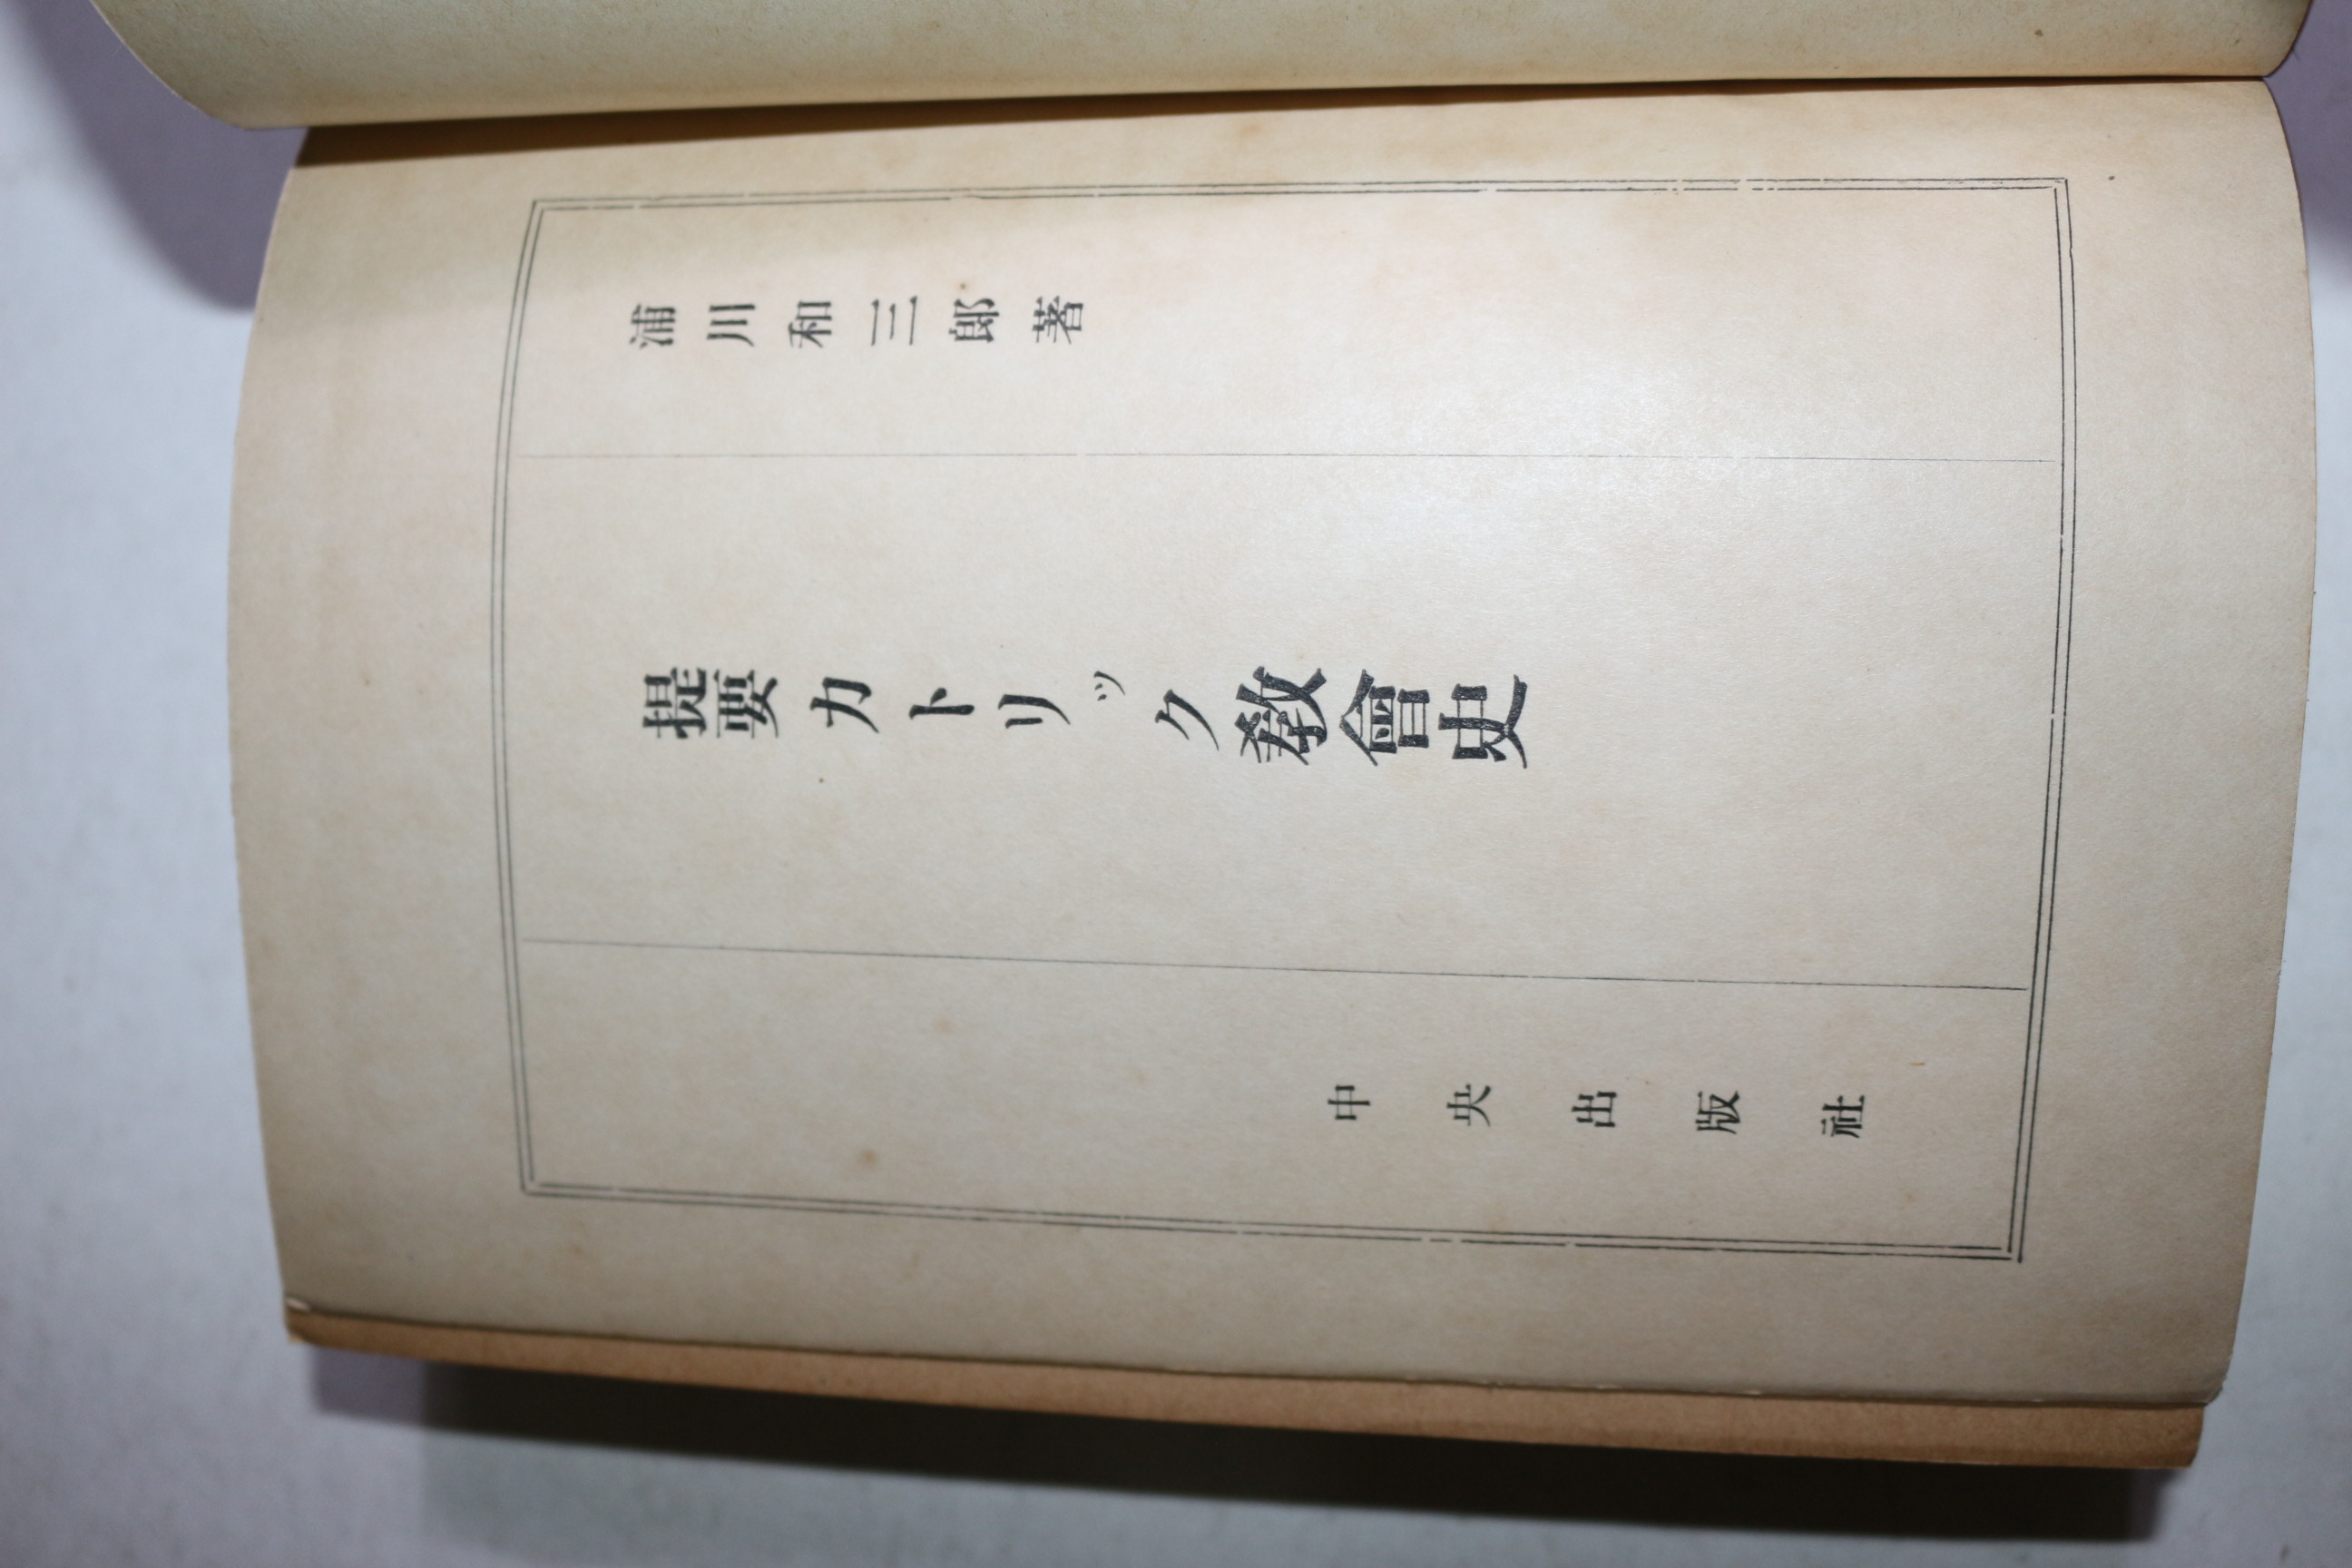 浦川和三郎著
提要カトリック敎會史
中央出版社